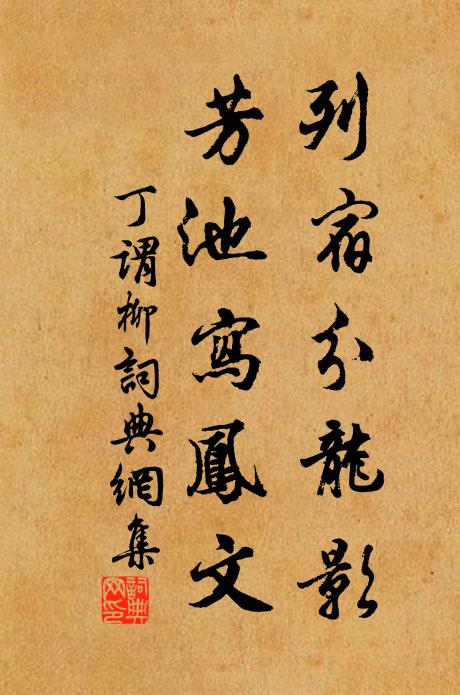 列宿分龍影
芳池寫鳳文
丁謂柳詞典網集
詞典網印